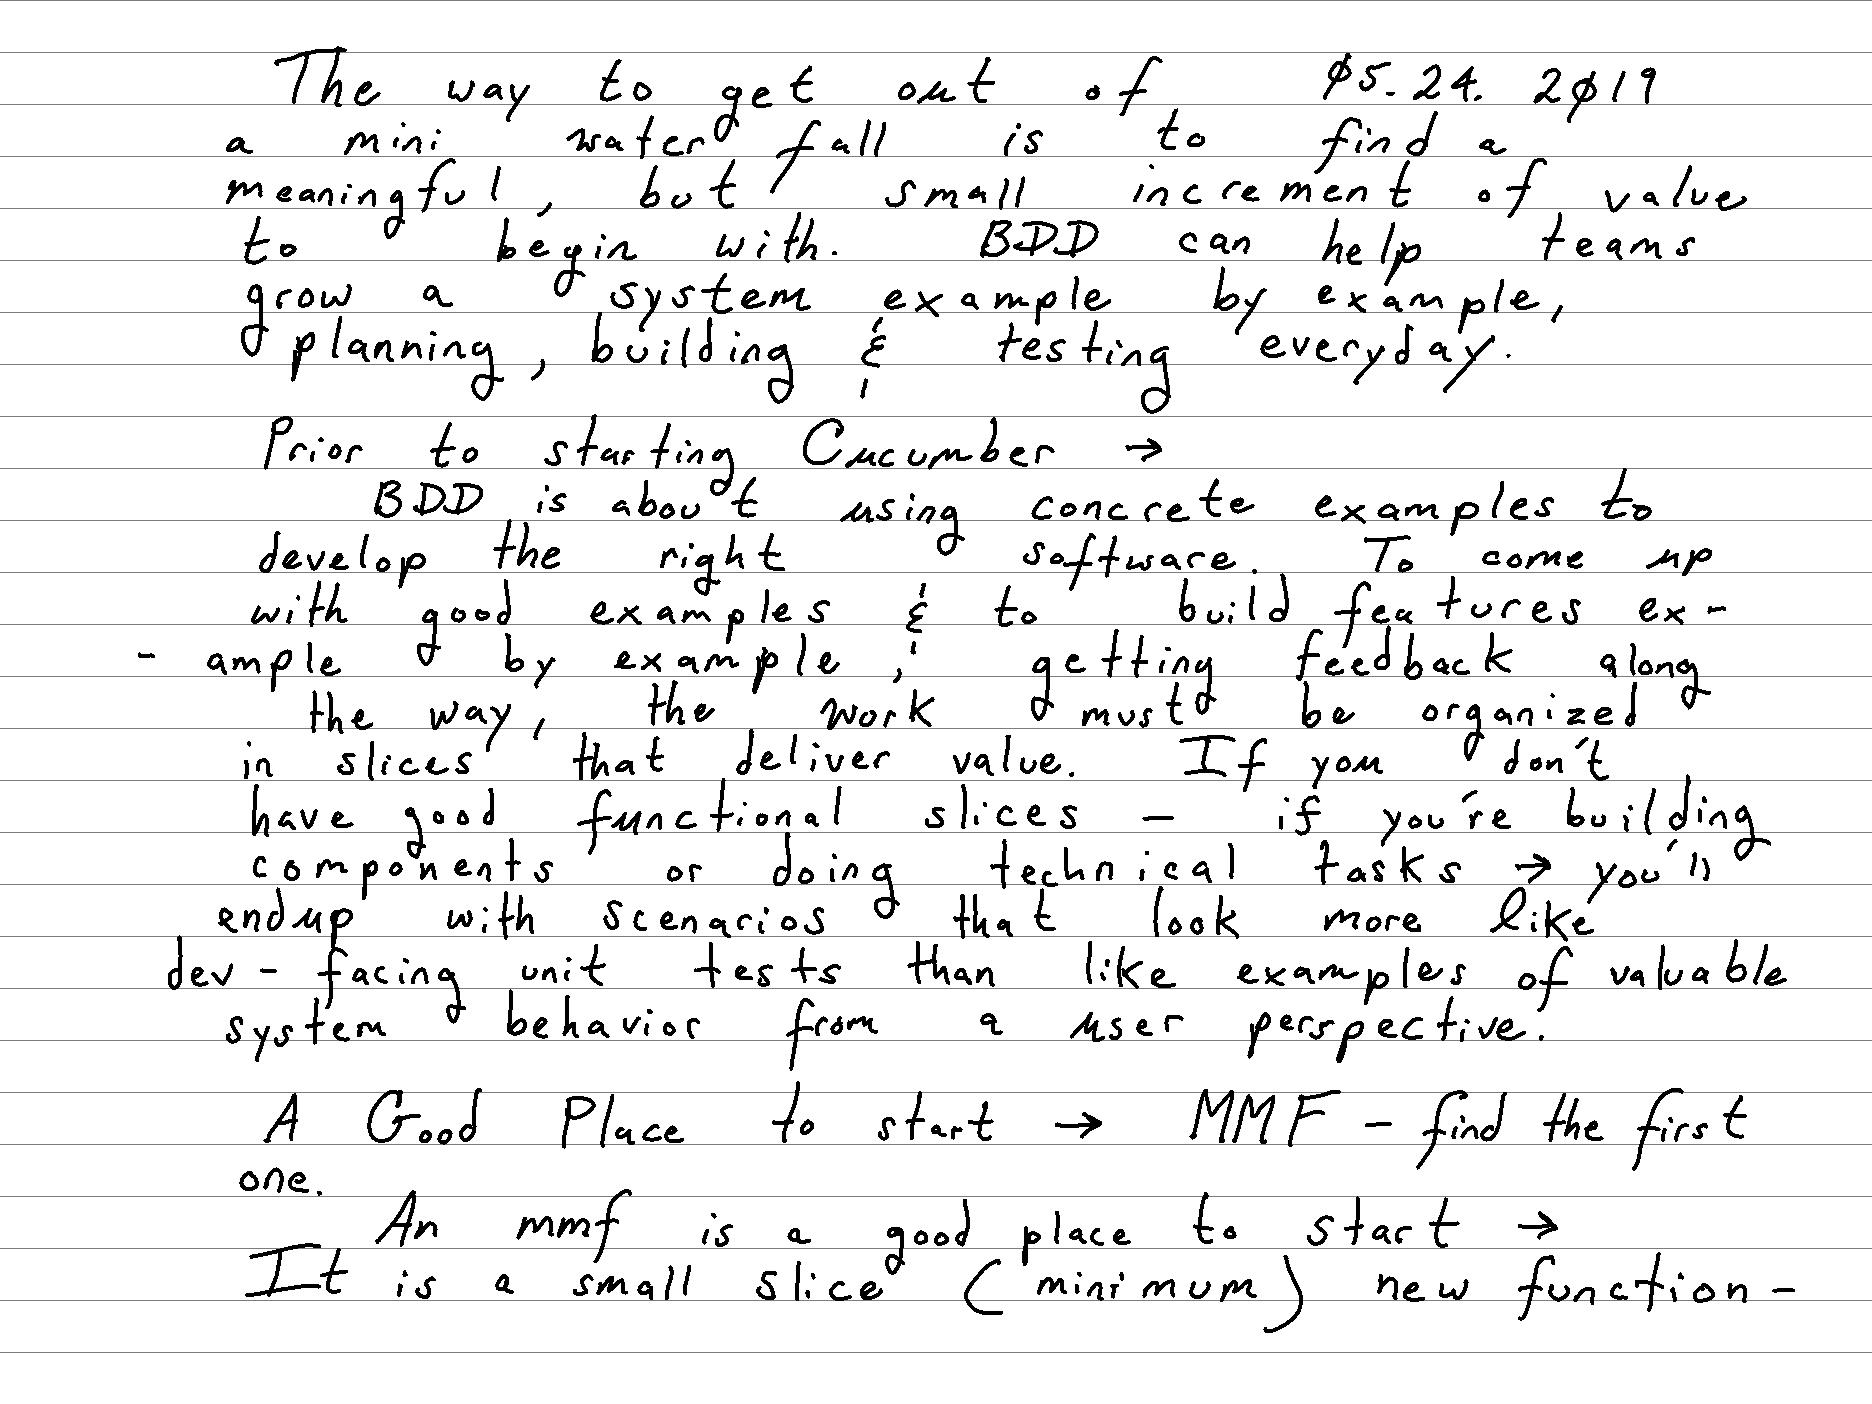 The way to get out of 05.24.2019
a mini waterfall is to find a
meaningful, but small increment of value
to begin with. BDD can help teams
grow a system example by example,
planning, building & testing everyday.
Prior to starting Cucumber →
BDD is about using concrete examples to
develop the right software. To come up
with good examples & to build features ex-
- ample by example, getting feedback along
the way, the work must be organized
in slices that deliver value. If you don't
have good functional slices - if you're building
components or doing technical tasks → you'll
endup with scenarios that look more like
dev-facing unit tests than like examples of valuable
system behavior from a user perspective.
A Good Place to start → MMF - find the first
one.
An mmf is a good place to start →
It is a small slice (minimum) new function-